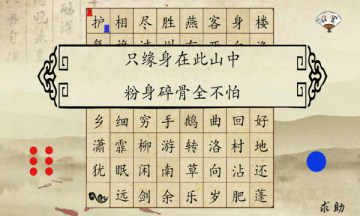 护相尽胜燕客身楼
只缘身在此山中
粉身碎骨全不怕
乡细穷手鹧曲回好
潇霏柳游转洛村地
犹眠闲南草向沾还
远剑余乐岁肥蓬
求助